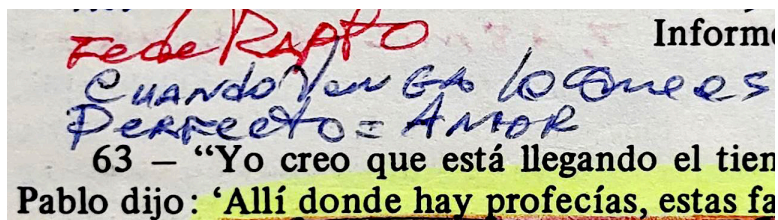 Fede RAPTO
Informe
CUANdo VENGA lo Que es
PERFecto = AMOR
63 – “Yo creo que está llegando el tien
Pablo dijo: ‘Allí donde hay profecías, estas fa